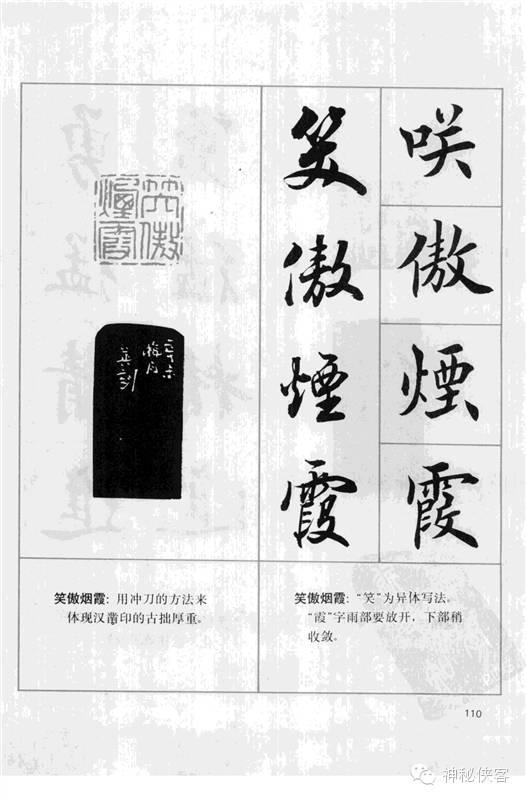 咲傲煙霞
笑傲煙霞
笑傲煙霞
笑傲烟霞：用冲刀的方法来
体现汉凿印的古拙厚重。
笑傲烟霞：“笑”为异体写法。
“霞”字雨部要放开，下部稍
收敛。
110
神秘侠客